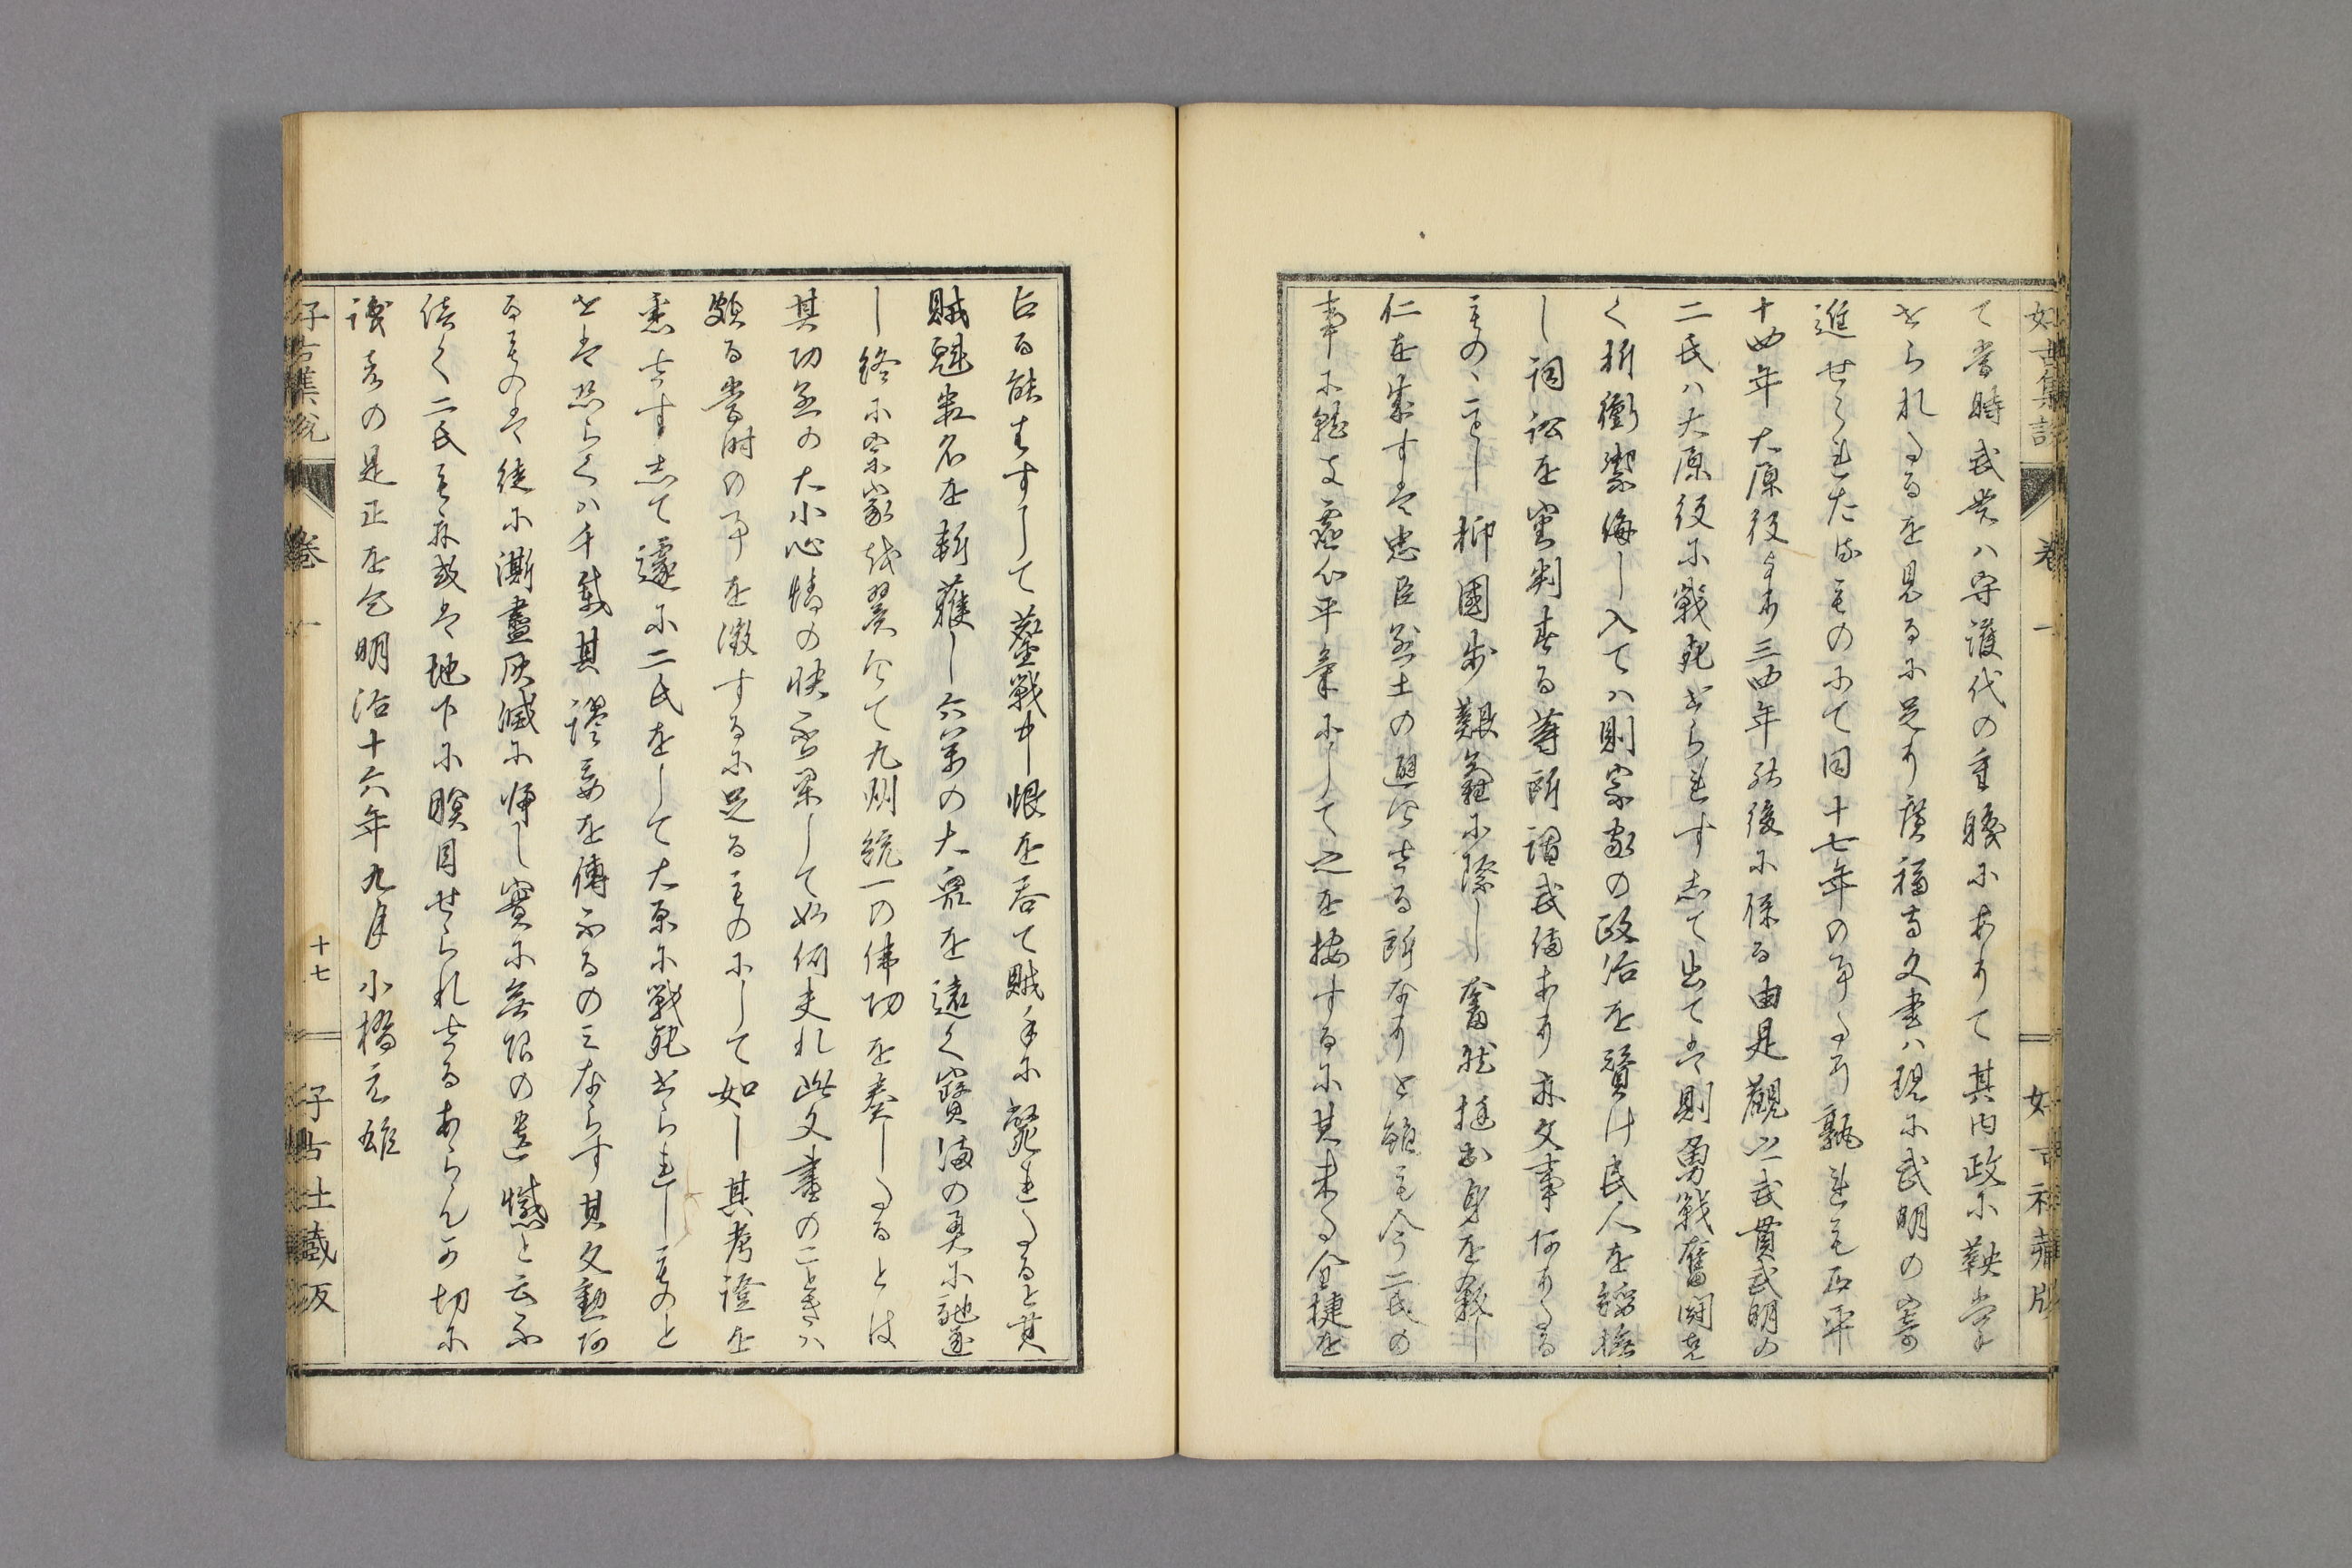 好古集説
卷一
好古社蔵版
て當時武貫ハ守護代の重職にありて其内政に鞅掌
せられたるを見るに足り廣福寺文書ハ現に武明の寄
進せられたるものにて同十七年の事たり孰れも正平
十四年大原役より三四年の後に係る由是觀之武貫武明の
二氏ハ大原役に戰死せられす出てハ則勇戰奮鬪克
く折衝禦侮し入てハ則宗家の政治を賛け民人を綏撫
し詞訟を審判する等所謂武備あり亦文事ある
ものゝことし抑國歩艱難に際し奮然挺出身を殺し
仁を成すハ忠臣烈士の避けさる所なりと雖も今二氏の
事に就き虚心平氣にして之を按するに其未た全捷を
占る能はすして鏖戰中恨を呑て賊手に斃れたると其
賊魁數名を斬獲し六萬の大衆を遠く寳満の奥に馳逐
し終に宗家を翼けて九州統一の偉功を奏したるとは
其功烈の大小心情の快否果して如何夫れ此文書のことき
頗る當時の事を徴するに足るものにして如し其考證を
悉さすして遽に二氏をして大原に戰死せられしものと
せは恐らくハ千載其謬妄を傳ふるのみならす其文勳
るものは徒に澌盡灰滅に帰し實に無限の遺憾と云ふ
へく二氏も亦或は地下に瞑目せられさるあらんか切に
識者の是正を乞明治十六年九月小橋元雄
好古集説
卷一
十七
好古社蔵版